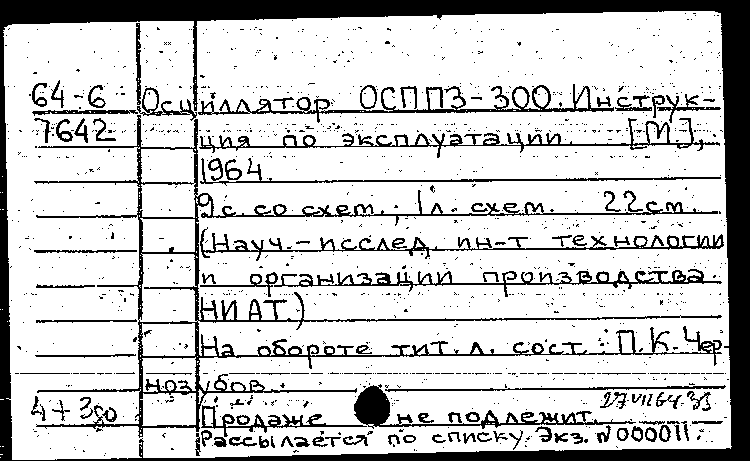 64-6 Осциллятор ОСППЗ-300. Инструк-
7642 ция по эксплуатации. [М.],
1964.
9 с. со схем.; 1 л. схем. 22 см.
(Науч.-исслед. ин-т технологии
и организации производства
НИАТ.)
На обороте тит. л. сост.: П. К. Чер-
нозубов.
4+3 Продаже не подлежит.
Рассылается по списку. Экз. №000011.